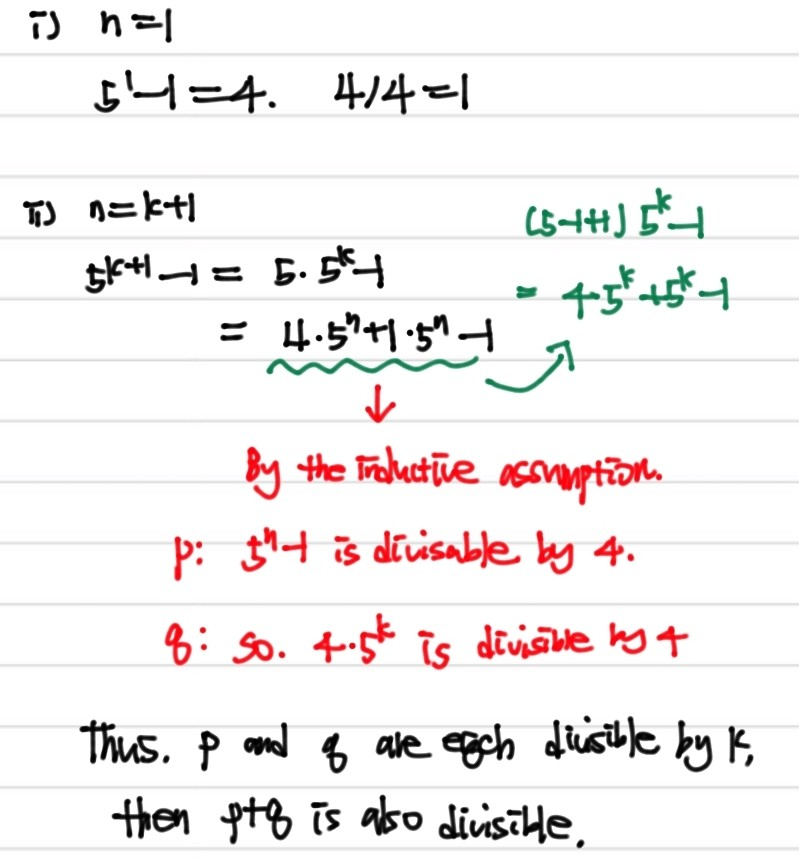 i) n=1
5¹-1=4. 4/4=1
ii) n=k+1
5^{k+1}-1 = 5·5^k-1
= 4·5^n+1·5^n-1
(5-1+1)5^k-1
= 4·5^k+5^k-1
By the inductive assumption.
p: 5^n-1 is divisable by 4.
q: so. 4·5^k is divisible by 4
Thus. p and q are each divisible by k,
then p+q is also divisible.